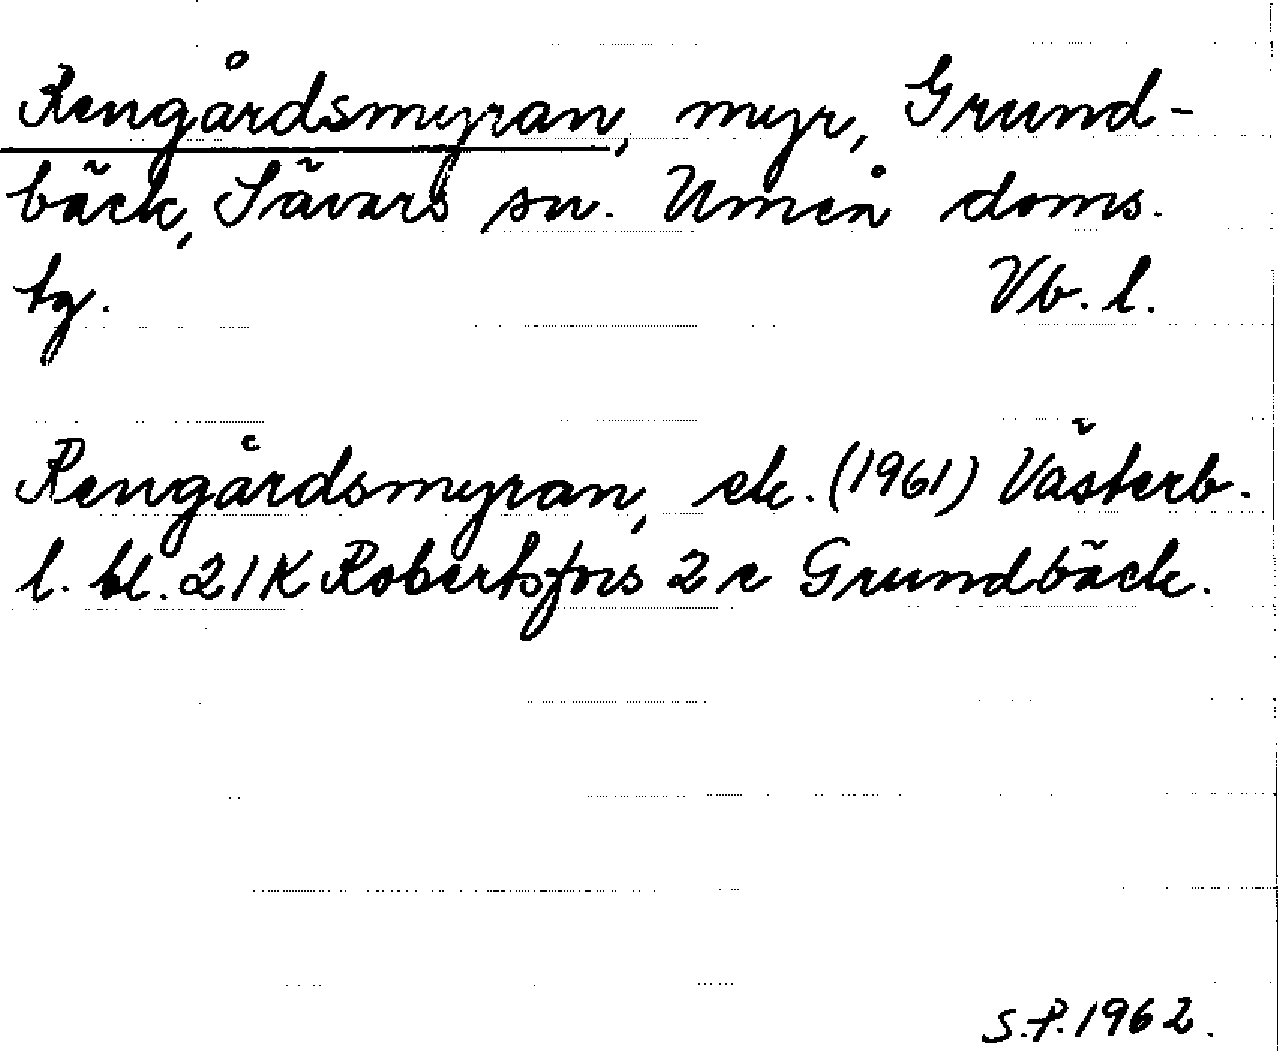 Rengårdsmyran, myr, Grund-
bäck, Sävars sn. Umeå doms.
tg. Vb. l.
Rengårdsmyran, ek. (1961) Västerb.
l. bl. 21K Robertsfors 2 c Grundbäck.
S.P. 1962.